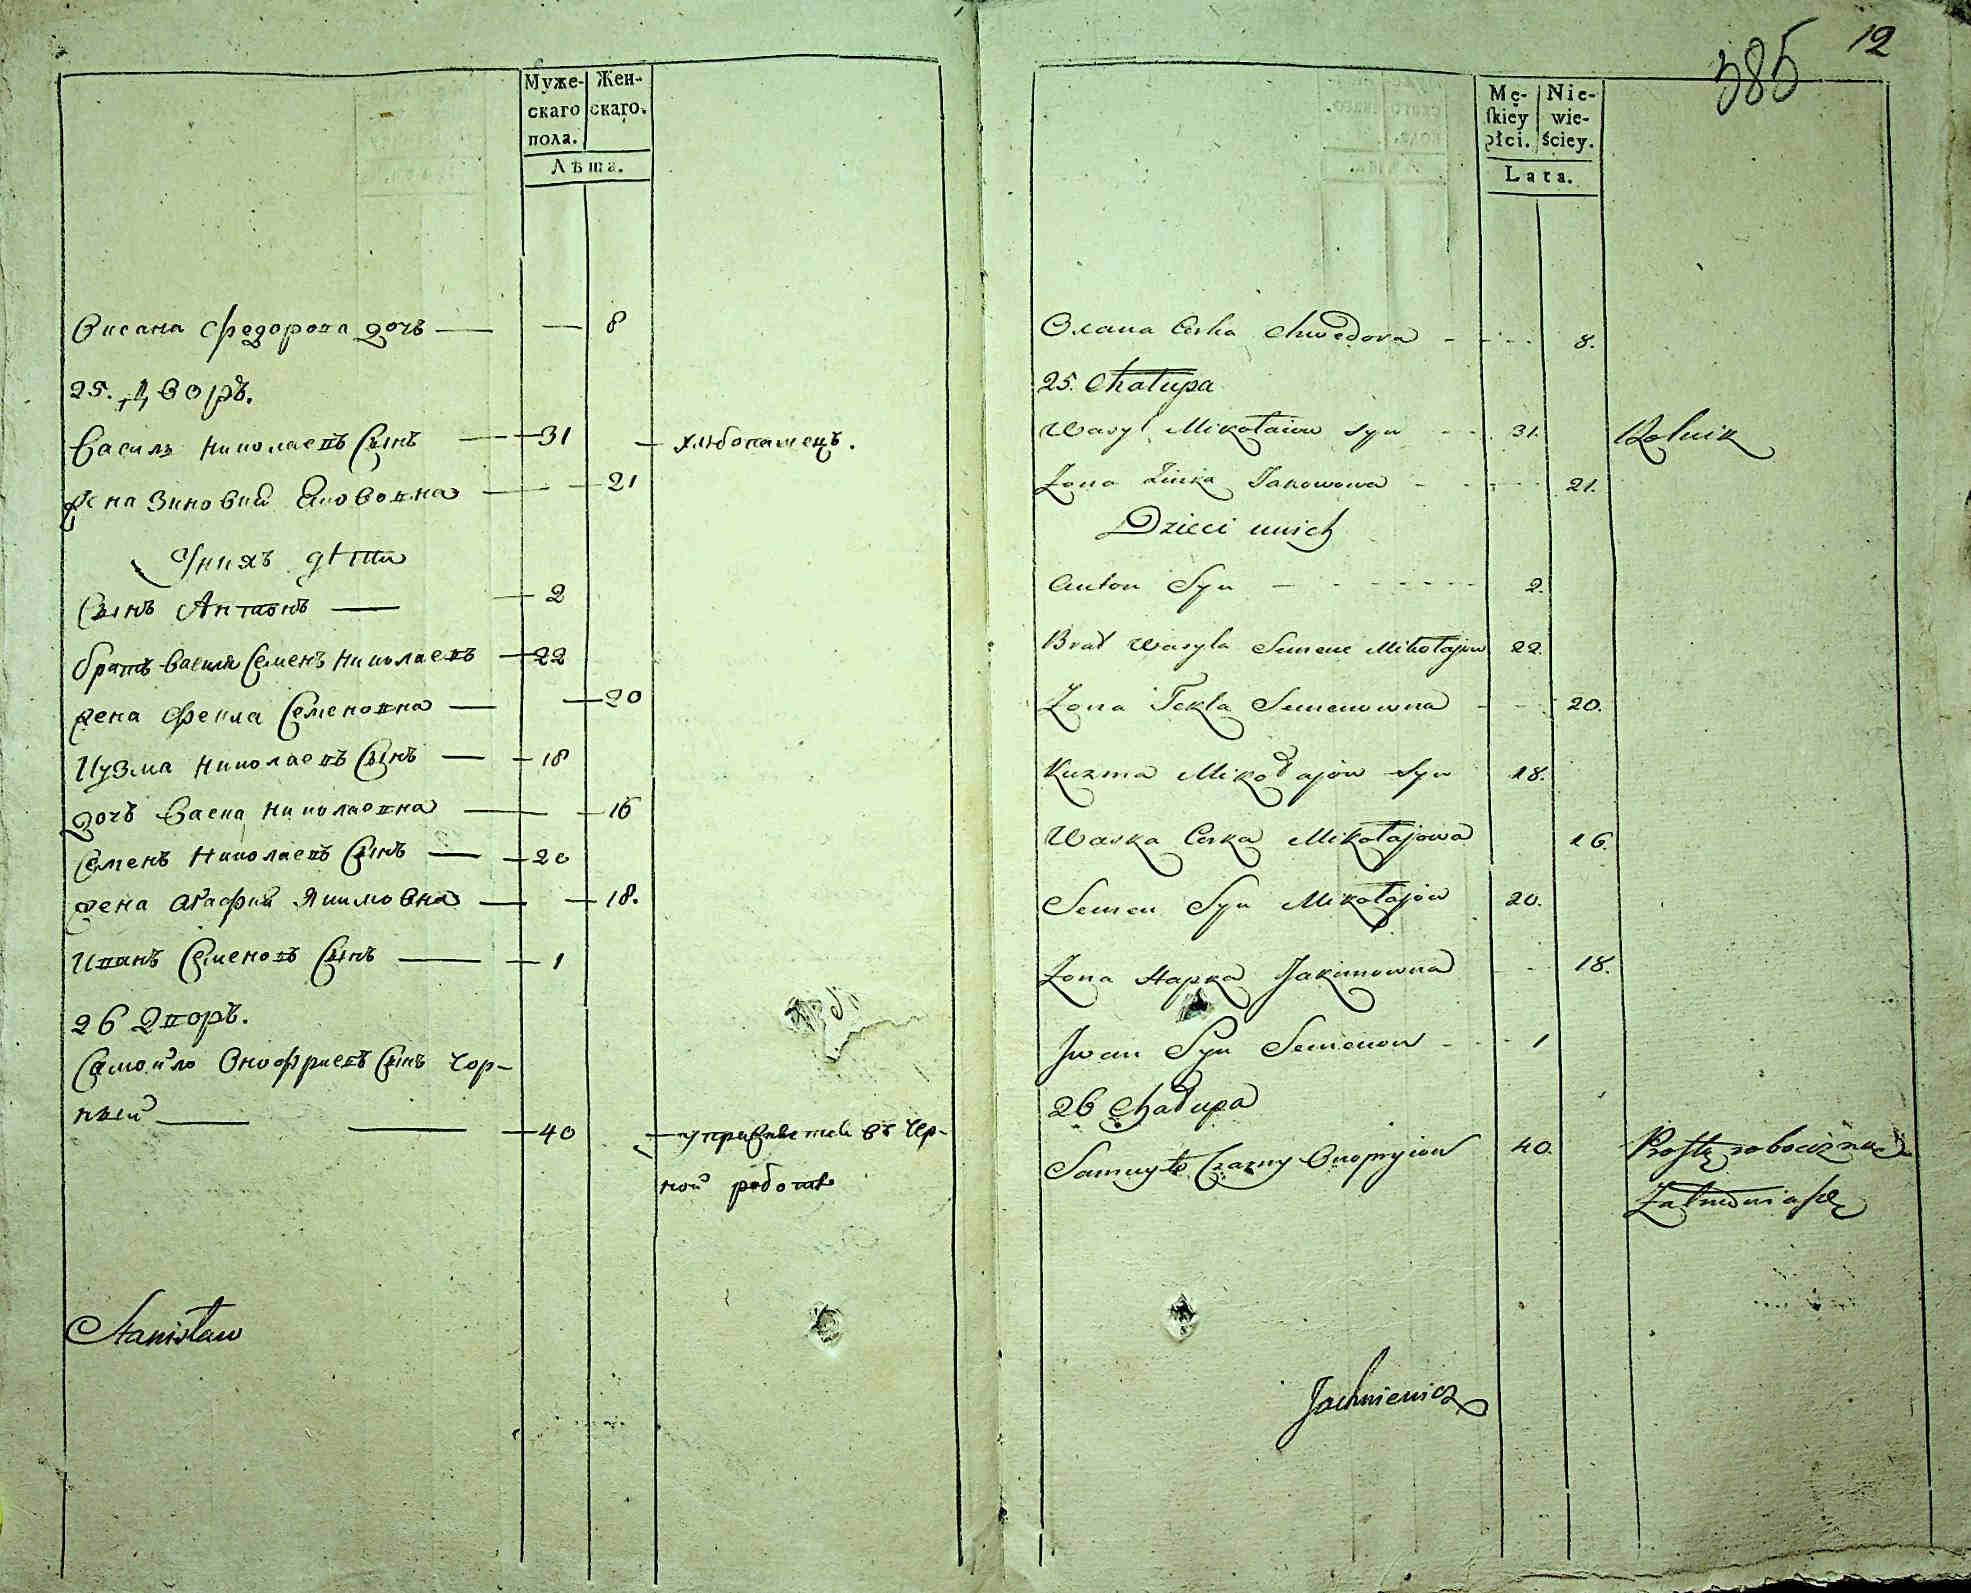 385 12
Муже-
скаго
пола.
Жен-
скаго.
Лѣта.
Оксана Федорова дочь — — 8
25. Дворъ.
Василь Николаевъ Сынъ — 31 — хлѣбопашецъ.
жена Зиновия Якововна — — 21
у нихъ дѣти
Сынъ Антонъ — 2
братъ Василя Семенъ Николаевъ — 22
жена Фекла Семеновна — — 20
Кузма Николаевъ Сынъ — 18
дочь Васка Николаевна — — 16
Семенъ Николаевъ Сынъ — 20
жена Агафия Якимовна — — 18.
Иванъ Семеновъ Сынъ — 1
26 Дворъ.
Самойло Онофриевъ Сынъ Чор-
ный — — 40 — упражняется въ чер-
ной работе
Stanisław
Mę-
ſkiey
płci.
Nie-
wie-
ściey.
Lata.
Oxana Corka Chwedora - - - - 8.
25. Chałupa
Wasyl Mikołaiow syn - - 31. Rolnik
Żona Zinka Jakowowa - - - 21.
Dzieci unich
Anton Syn - - - - - 2.
Brat Wasyla Semene Mikołajow 22.
Żona Tekla Semenowna - - - 20.
Kuzma Mikołajow Syn 18.
Waska Corka Mikołajowa 16.
Semen Syn Mikołajow 20.
Żona Hapka Jakimowna - - 18.
Jwan Syn Semenow - - - 1
26 Chałupa
Samuyło Czarny Onopryiow 40. Prostą robocizną
Zatrudnia się
Jachniewicz